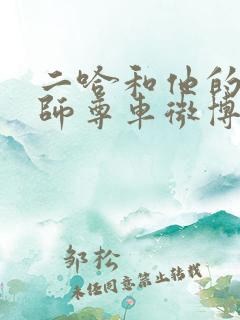 二哈和他的
師尊车微博
邹松
未经同意禁止转载